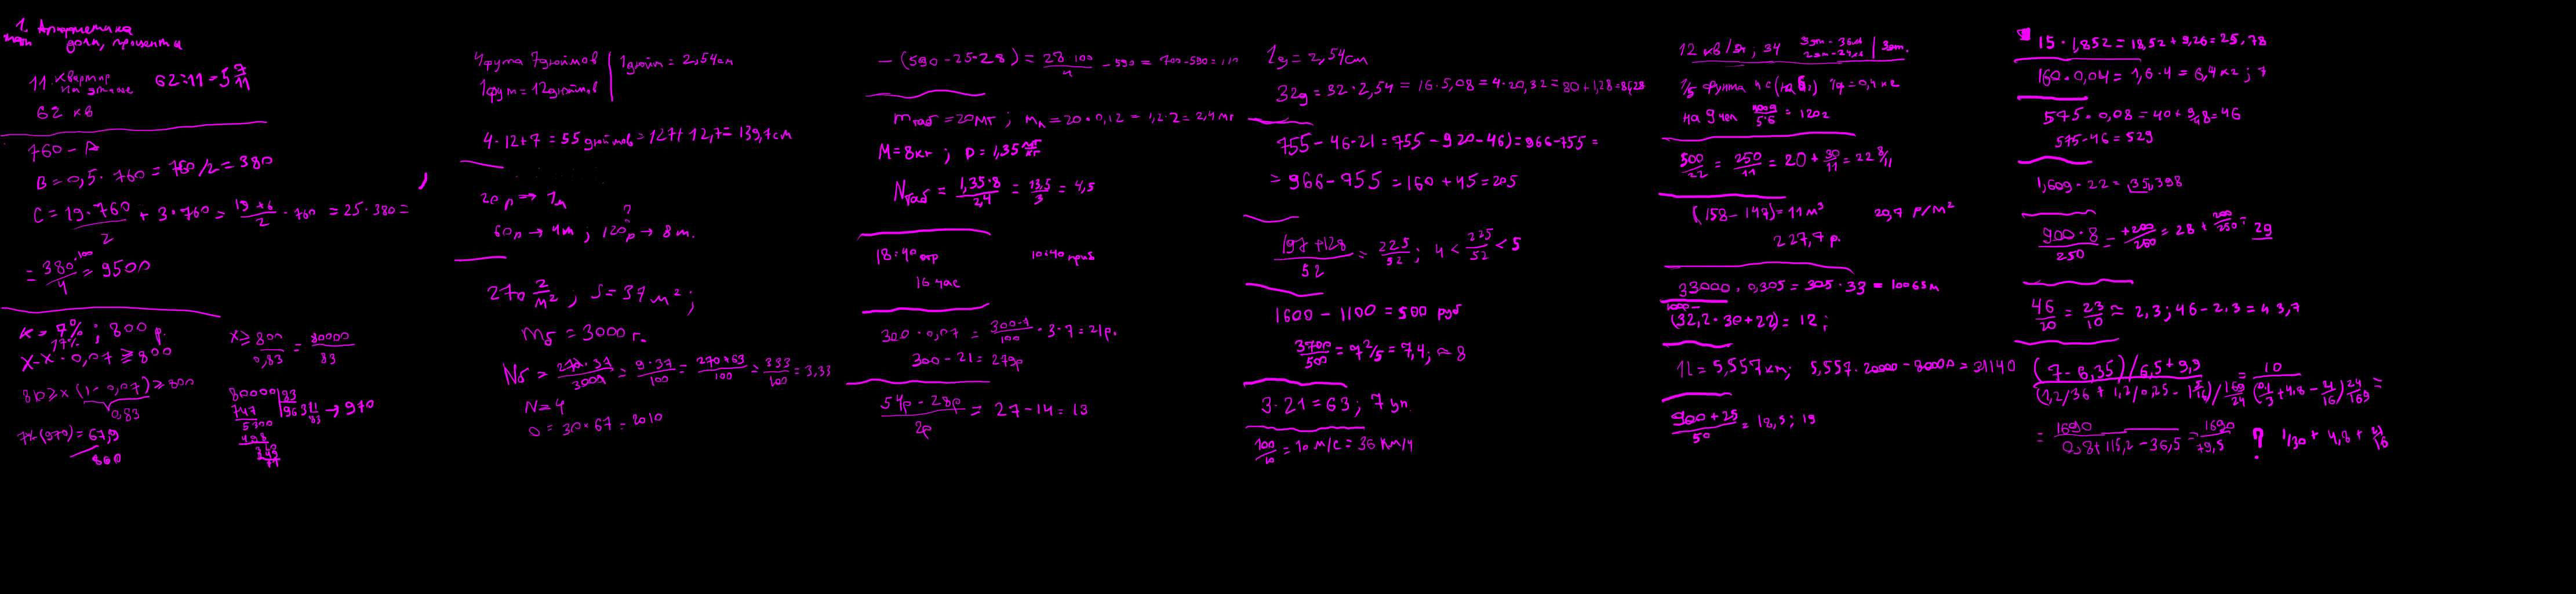 1. Арифметика
доли, проценты
11 квартир
на этаже
62 : 11 = 5 7/11
62 кв
760 - A
B = 0,5 · 760 = 760/2 = 380
C = 19·760/2 + 3·760 = 19+6/2 · 760 = 25·380 =
= 380·100/4 = 9500
K = 7% ; 800 р.
17%
X - X · 0,07 ≥ 800
X ≥ 800/0,83 = 80000/83
810 ≥ x (1 - 0,07) ≥ 800
0,83
80000 | 83
747
963 11/83 → 970
7% (970) = 67,9
860
4 фута 7 дюймов
1 фут = 12 дюймов
1 дюйм = 2,54 см
4·12+7 = 55 дюймов = 127+12,7 = 139,7 cm
20 р → 1 м
?
60 р → 4 м ; 120 р → 8 м.
270 г/м², S = 37 м² ;
mб = 3000 г.
Nб = 270·37/3000 = 9·37/100 = 270+63/100 = 333/100 = 3,33
N = 4
O = 30·67 = 2010
- (590 - 25·28) = 28·100/4 - 590 = 700-590 = 110
mтаб = 20 мг ; mл = 20·0,12 = 1,2·2 = 2,4 мг
M = 8 кг ; D = 1,35 мг/кг
Nтаб = 1,35·8/2,4 = 13,5/3 = 4,5
18:40 отр
10:40 приб
16 час
300·0,07 = 300·7/100 = 3·7 = 21 р.
300 - 21 = 279 р
54р - 28р/2р = 27 - 14 = 13
1g = 2,54 cm
32g = 32·2,54 = 16·5,08 = 4·20,32 = 80+1,28 = 81,28
755 - 46·21 = 755 - 920 - 46) = 966 - 755 =
= 966 - 955 = 160 + 45 = 205
197+128/52 = 225/52 ; 4 < 225/52 < 5
1600 - 1100 = 500 руб
3700/500 = 7 2/5 = 7,4 ; ≈ 8
3·21 = 63 ; 7 уп
100/10 = 10 м/с = 36 км/ч
12 кв/эт ; 34
3эт - 36кв
2эт - 24кв
3эт.
1/5 фунта
1ф = 0,4 кг
на 9 чел
= 120 г
500/22 = 250/11 = 20 + 30/11 = 22 8/11
(158 - 147) = 11 м³
20,7 р/м²
227,7 р.
33000 · 0,305 = 305·33 = 10065 м
1000 -
(32,2·30+22) = 12 ;
1L = 5,557 км ; 5,557·20000 - 80000 = 31140
900+25/50 = 18,5 ; 19
15·1,852 = 18,52 + 9,26 = 25,78
160·0,04 = 1,6·4 = 6,4 кг ; 7
575·0,08 = 40 + = 46
575 - 46 = 529
1,609·22 = 35,398
900·8/250 = 7200/250 = 28 + 200/250 = 29
46/20 = 23/10 ≈ 2,3 ; 46 - 2,3 = 43,7
(7 - 6,35)/6,5 + 9,9
(1,2/36 + 1,2/0,25 - 1 5/16)/169/24
= 10/(0,1/3 + 4,8 - 21/16) 24/169 =
= 1690/0,8+115,2-36,5 = 1690/79,5 ? 1/30 + 4,8 + 21/16